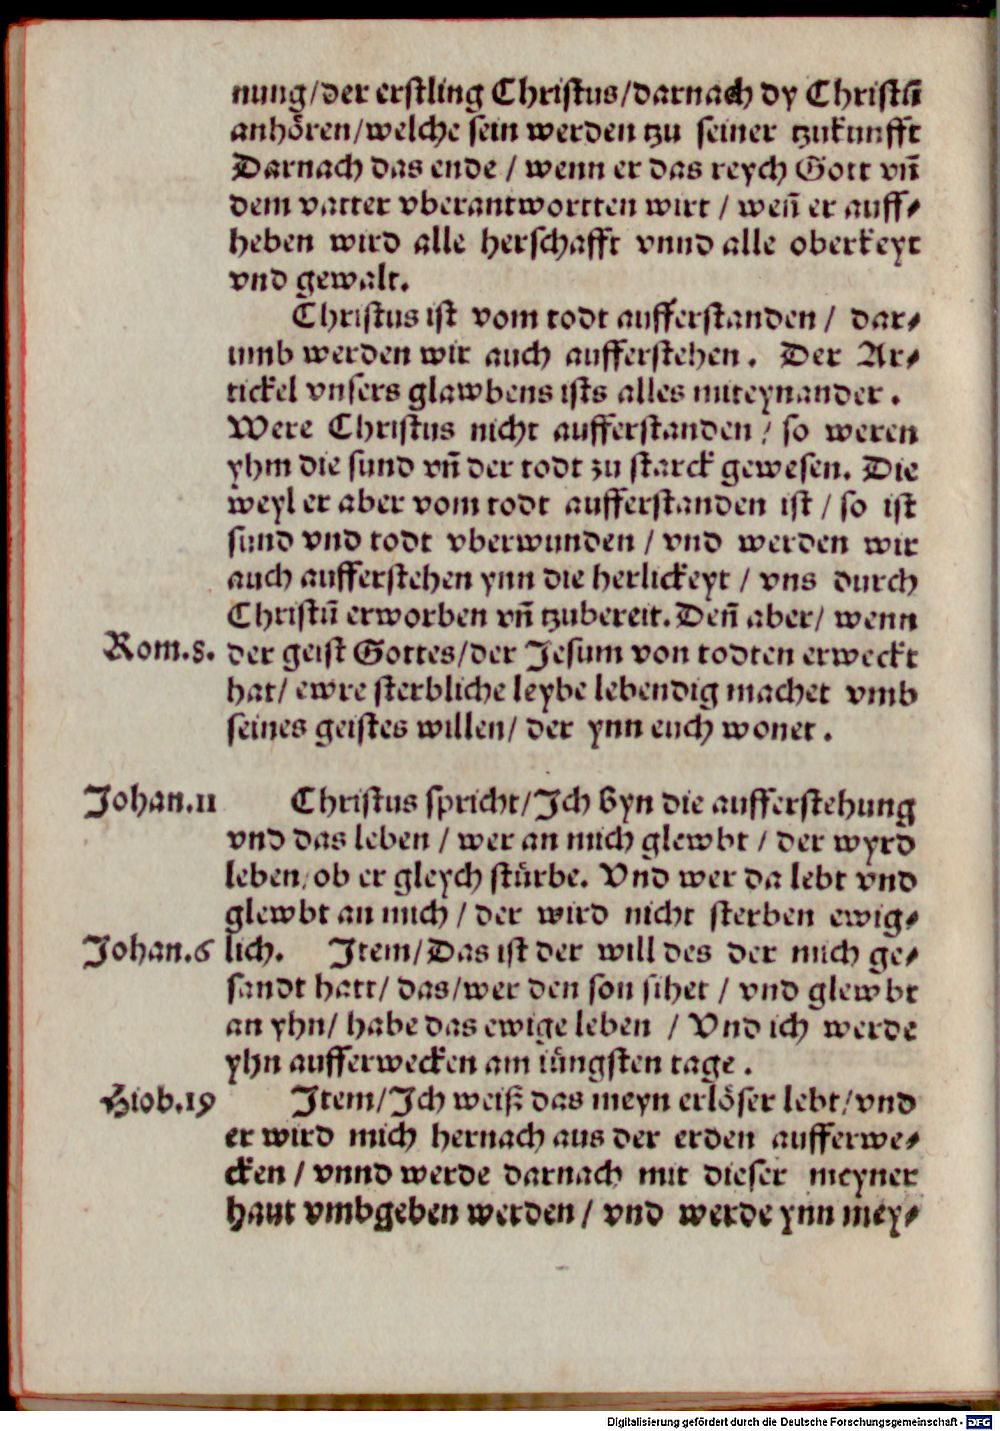 nung/der erstling Christus/darnach dy Christū
anhören/welche sein werden tzu seiner tzukunfft
Darnach das ende / wenn er das reych Gott vñ
dem vatter vberantwortten wirt / weñ er auff⸗
heben wird alle herschafft vnnd alle oberkeyt
vnd gewalt.
Christus ist vom todt aufferstanden / dar⸗
umb werden wir auch aufferstehen. Der Ar⸗
tickel vnsers glawbens ists alles miteynander.
Were Christus nicht aufferstanden / so weren
yhm die sund vñ der todt zu starck gewesen. Die
weyl er aber vom todt aufferstanden ist / so ist
sund vnd todt vberwunden / vnd werden wir
auch aufferstehen ynn die herlickeyt / vns durch
Christū erworben vñ tzubereit. Deñ aber / wenn
Rom.8. der geist Gottes/der Jesum von todten erweckt
hat/ ewre sterbliche leybe lebendig machet vmb
seines geistes willen/ der ynn euch wonet.
Johan.11 Christus spricht/Ich byn die aufferstehung
vnd das leben / wer an mich glewbt / der wyrd
leben/ob er gleych stürbe. Vnd wer da lebt vnd
glewbt an mich / der wird nicht sterben ewig⸗
Johan.6 lich. Item/Das ist der will des der mich ge⸗
sandt hatt/ das/wer den son sihet / vnd glewbt
an yhn/ habe das ewige leben / Vnd ich werde
yhn aufferwecken am iüngsten tage.
Hiob.19 Item/Ich weiß das meyn erlöser lebt/vnd
er wird mich hernach aus der erden aufferwe⸗
cken / vnnd werde darnach mit dieser meyner
haut vmbgeben werden / vnd werde ynn mey⸗
Digitalisierung gefördert durch die Deutsche Forschungsgemeinschaft - DFG